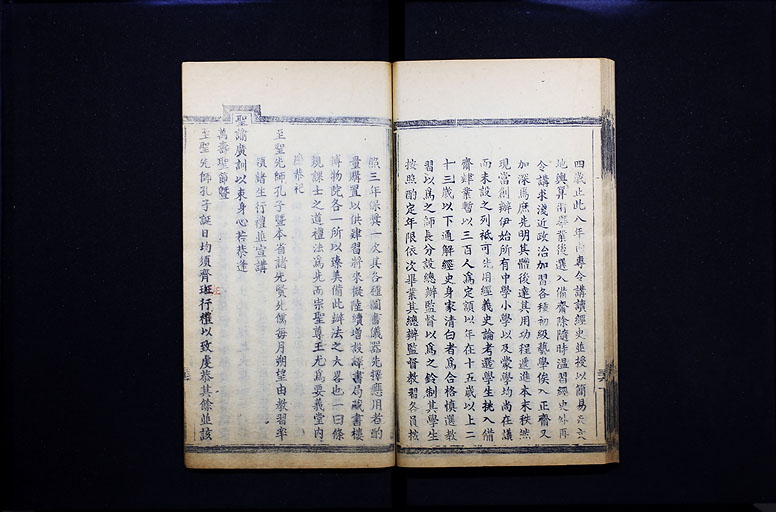 四歲止此八年內專令講讀經史並授以簡易天文
地輿算術畢業後選入備齋除隨時溫習經史外再
令講求淺近政治加習各種初級藝學俟入正齋又
加深焉庶先明其體後達其用功程遞進本末秩然
現當創辦伊始所有中學小學以及蒙學均尚在議
而未設之列祇可先用經義史論考選學生挑入備
齋肄業暫以三百人為定額以年在十五歲以上二
十三歲以下通解經史身家清白者為合格慎選教
習以為之師長分設總辦監督以為之鈐制其學生
按照酌定年限依次畢業其總辦監督教習各員按
照三年保獎一次其各種圖書儀器先擇應用者酌
量購置以供肄習將來擬陸續增設譯書局藏書樓
博物院各一所以臻美備此辦法之大畧也一曰條
規課士之道禮法為先而宗聖尊王尤為要義堂內
應恭祀
至聖先師孔子暨本省諸先賢先儒每月朔望由教習率
領諸生行禮並宣講
聖諭廣訓以束身心若恭逢
萬壽聖節暨
至聖先師孔子誕日均須齊班行禮以致虔恭其餘並該